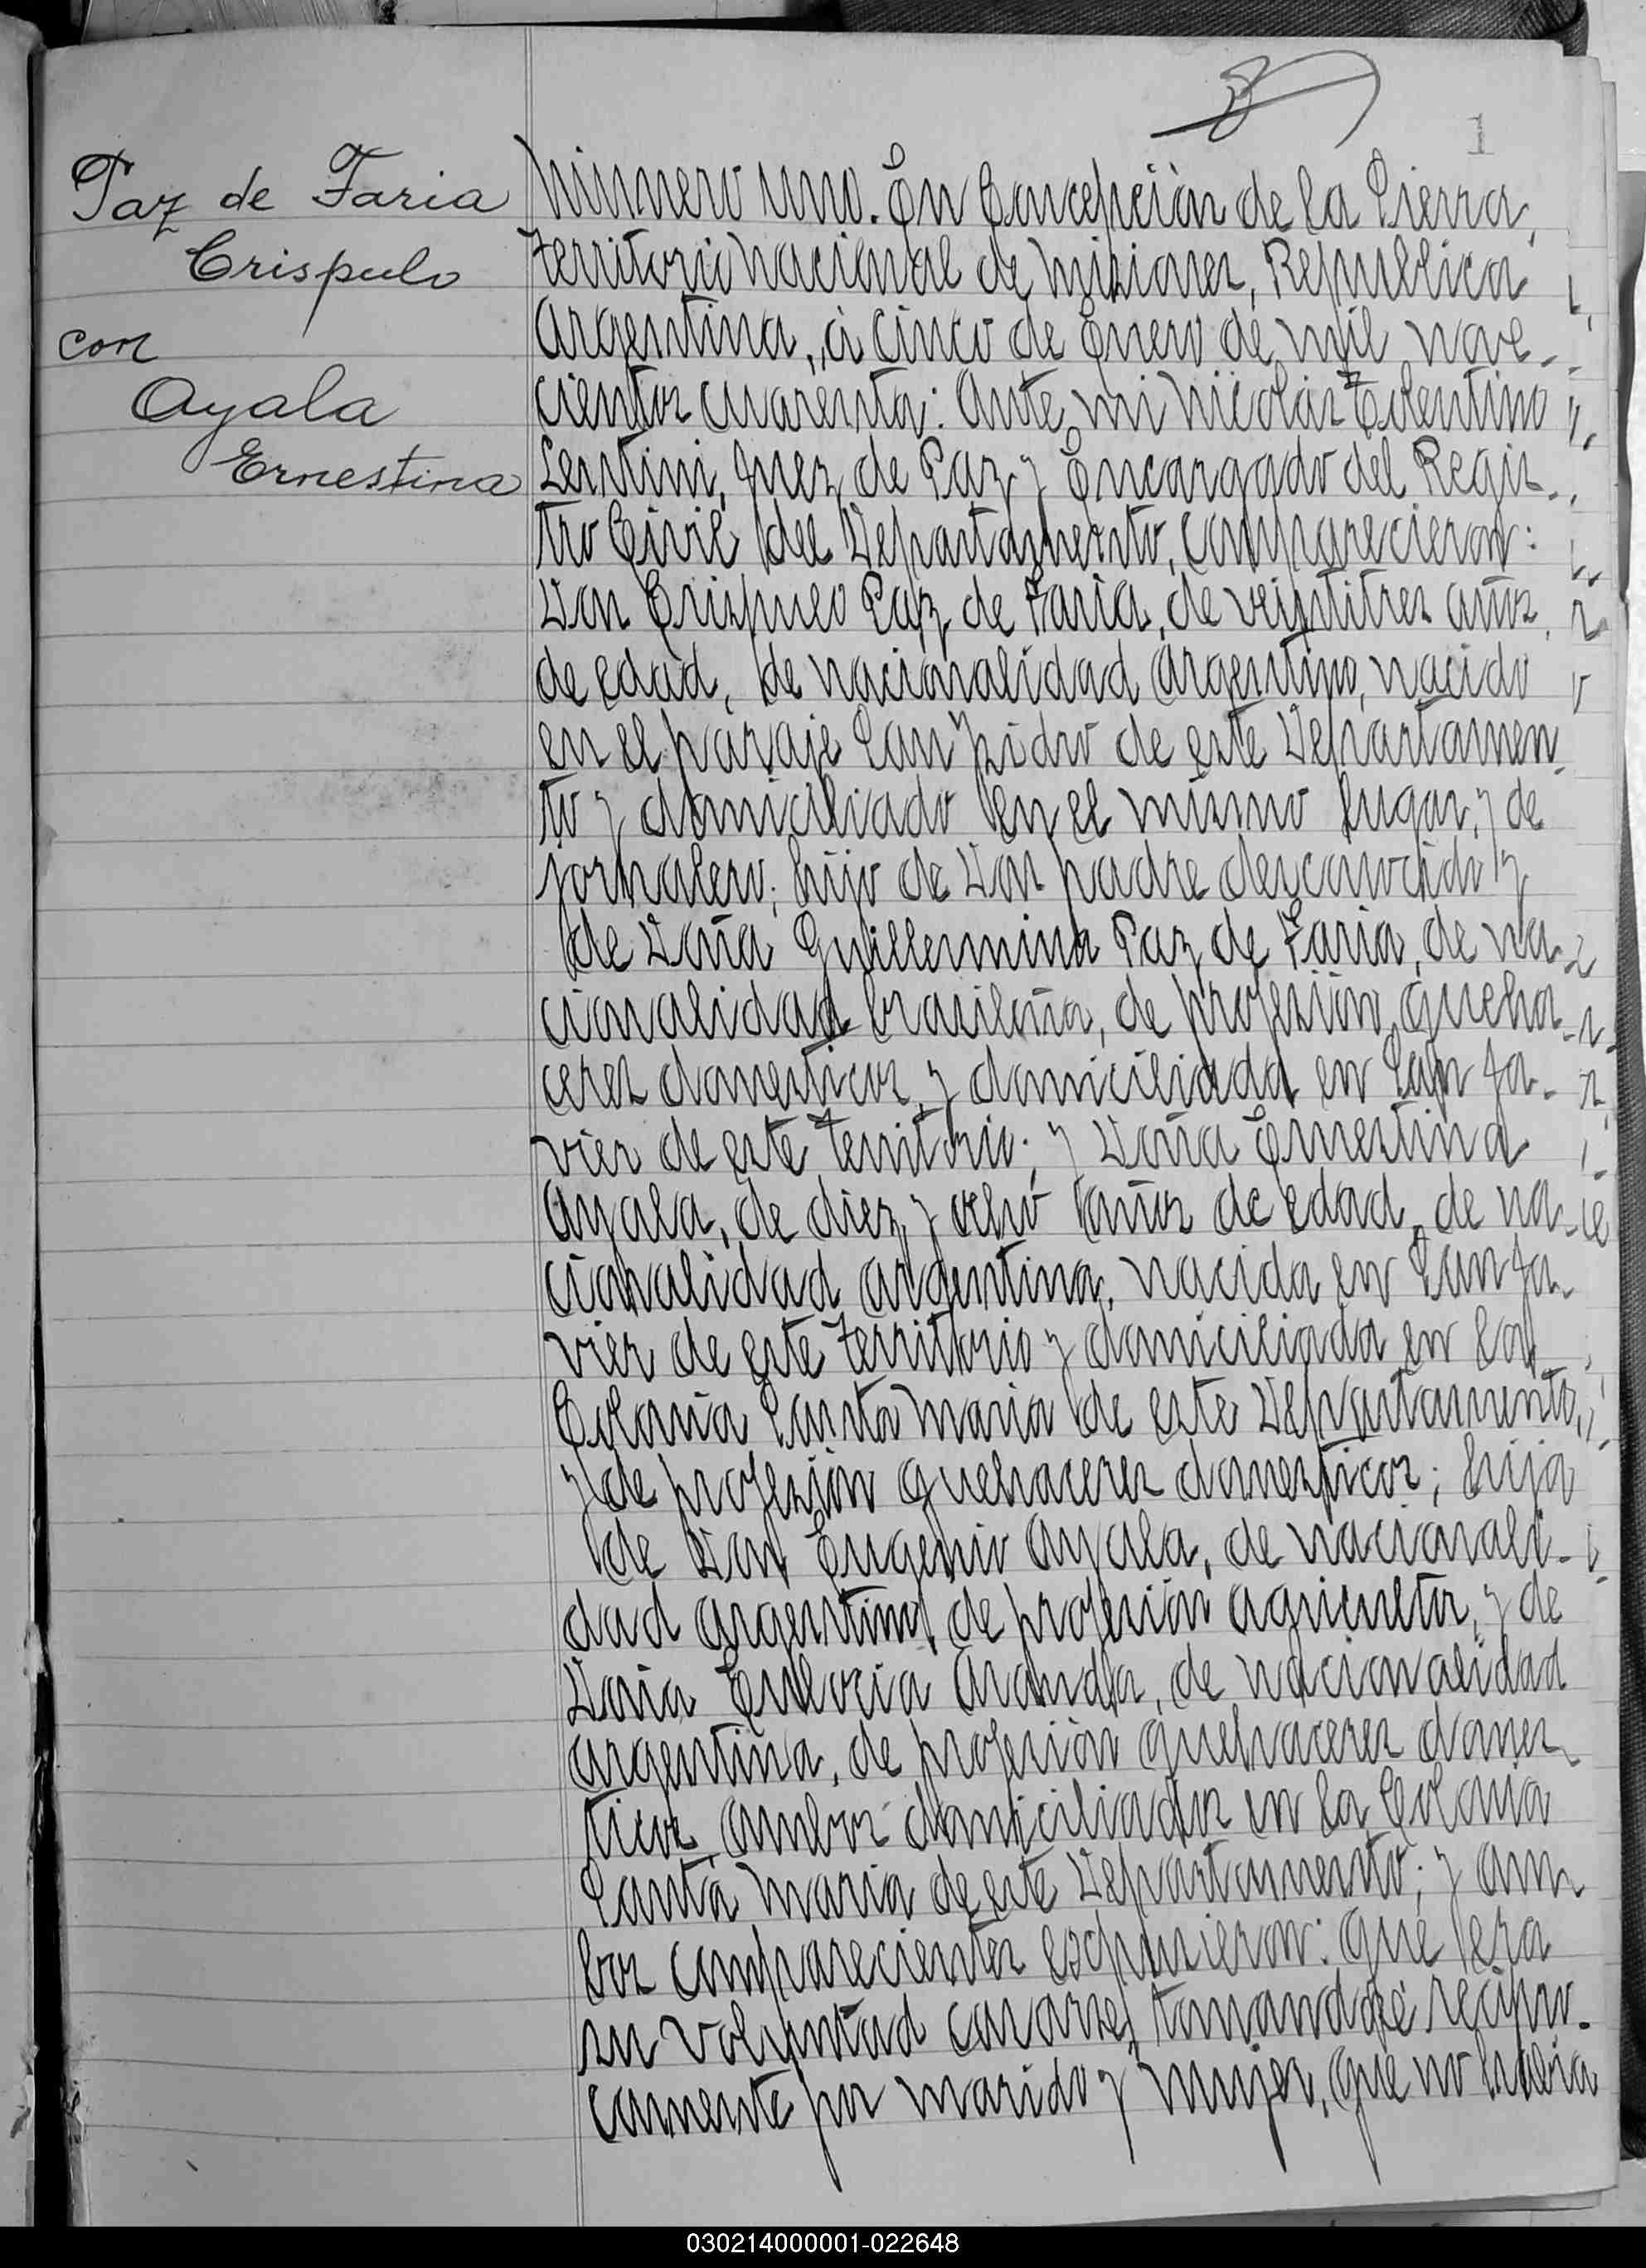 1
Paz de Faria
Crispulo
con
Ayala
Ernestina
Número uno. En Concepción de la Sierra,
territorio nacional de Misiones, República
Argentina, á cinco de Enero de mil nove-
cientos cuarenta: Ante mi Nicolás Tolentino
Lentini, Juez de Paz y Encargado del Regis-
tro Civil del Departamento, comparecieron:
Don Crispulo Paz de Faria, de veintitres años
de edad, de nacionalidad argentino, nacido
en el paraje San Isidro de este Departamen
to y domiciliado en el mismo lugar, y de
jornalero; hijo de Don padre desconocido y
de Doña Guillermina Paz de Faria, de na-
cionalidad brasileña, de profesión queha-
ceres domesticos, y domiciliada en San Ja-
vier de este Territorio; y Doña Ernestina
Ayala, de diez y ocho años de edad, de na-
cionalidad argentina, nacida en San Ja-
vier de este territorio y domiciliada en la
Colonia Santa Maria de este Departamento,
y de profesión quehaceres domesticos; hija
de Don Eugenio Ayala, de nacionali-
dad argentino, de profesión agricultor, y de
Doña Eulocia Aranda, de nacionalidad
argentina, de profesión quehaceres domes
ticos, ambos domiciliados en la Colonia
Santa Maria de este Departamento; y am
bos comparecientes expusieron: que era
su voluntad casarse, tomandose recipro-
camente por marido y mujer, que no habia
030214000001-022648